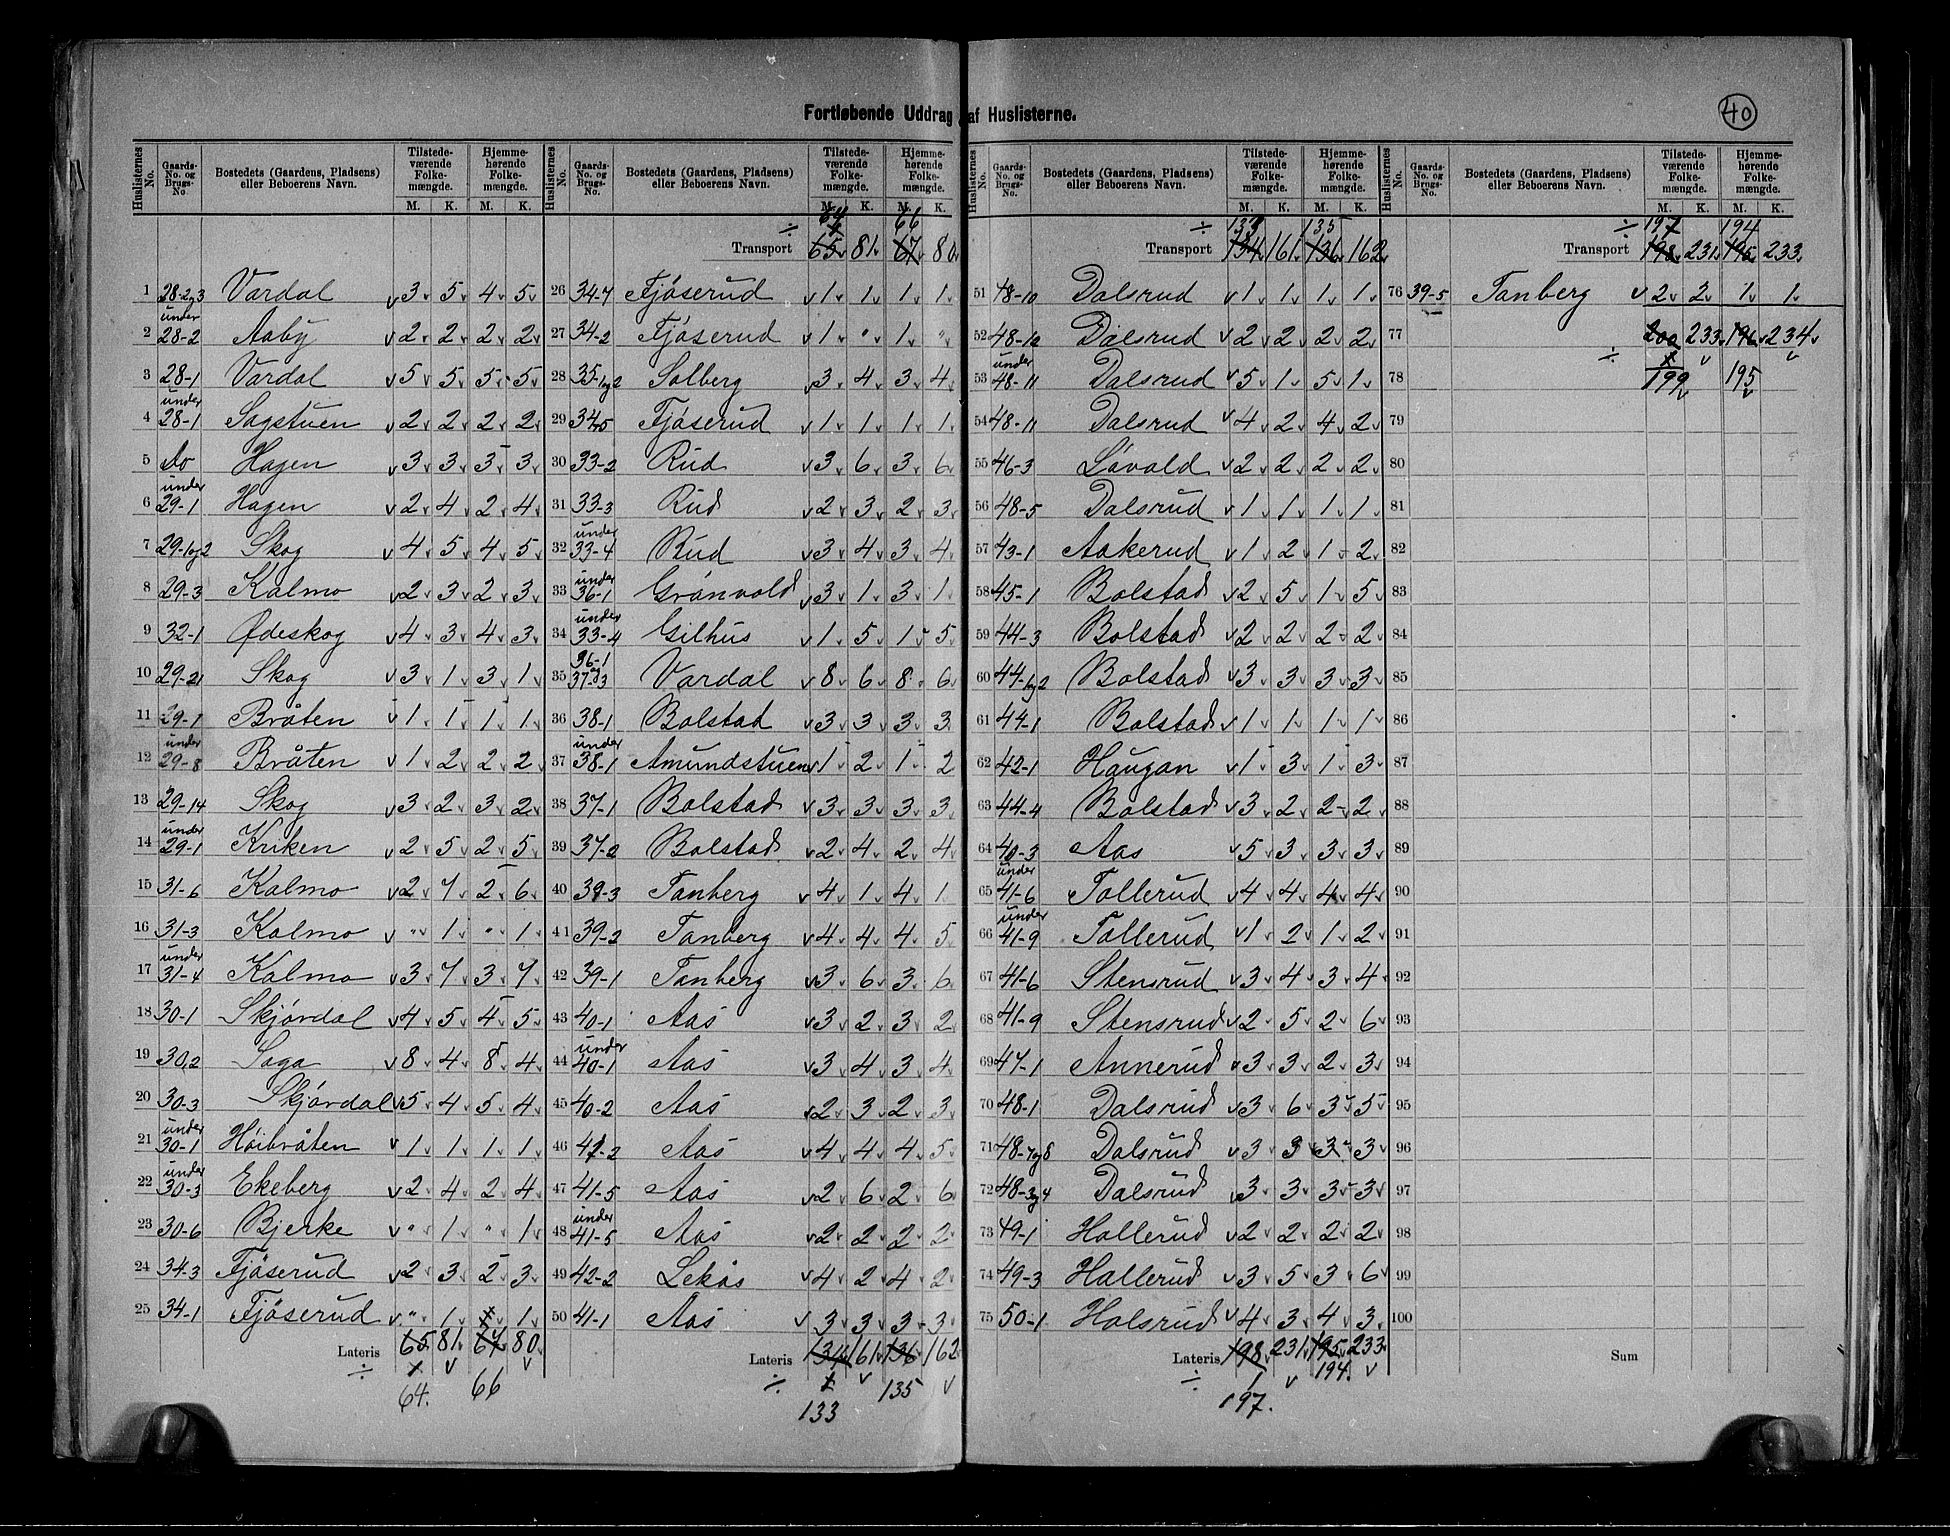 Fortløbende Uddrag af Huslisterne.
40
Huslisternes No. | Gaards-No. og Brugs-No. | Bostedets (Gaardens, Pladsens) eller Beboerens Navn. | Tilstedeværende Folkemængde. M. K. | Hjemmehørende Folkemængde. M. K.
1 28-2og3 Vardal 3 5 4 5
2 under 28-2 Aaby 2 2 2 2
3 28-1 Vardal 5 5 5 5
4 under 28-1 Sagstuen 2 2 2 2
5 do Hagen 3 3 3 3
6 under 29-1 Hagen 2 4 2 4
7 29-1og2 Skog 4 5 4 5
8 29-3 Kalmo 2 3 2 3
9 32-1 Ødeskog 4 3 4 3
10 29-21 Skog 3 1 3 1
11 29-1 Bråten 1 1 1 1
12 under 29-8 Bråten 1 2 2 2
13 29-14 Skog 3 2 3 2
14 under 29-1 Kriken 2 5 2 5
15 31-6 Kalmo 2 7 2 6
16 31-3 Kalmo " 1 " 1
17 under 31-4 Kalmo 3 7 3 7
18 30-1 Skjørdal 4 5 4 5
19 30,2 Saga 8 4 8 4
20 30-3 Skjørdal 5 4 5 4
21 under 30-1 Høibråten 1 1 1 1
22 under 30-3 Ekeberg 2 4 2 4
23 30-6 Bjerke " 1 " 1
24 34-3 Fjøserud 2 3 2 3
25 34-1 Fjøserud " 1 1 1
Lateris 65 81 67 80
÷ 1
64. 66
÷ 64 66
1
Transport 65 81 67 80
26 34-7 Fjøserud 1 1 1 1
27 34-2 Fjøserud 1 " 1 "
28 35-1og2 Solberg 3 4 3 4
29 34,5 Fjøserud 1 1 1 1
30 33-2 Rud 3 6 3 6
31 33-3 Rud 2 3 2 3
32 under 33-4 Rud 3 4 3 4
33 under 36-1 Grønvold 3 1 3 1
34 under 33-4 Gilhus 1 5 1 5
35 36-1 og 37-3 Vardal 8 6 8 6
36 38-1 Bolstad 3 3 3 3
37 under 38-1 Amundstuen 1 2 1 2
38 37-1 Bolstad 3 3 3 3
39 37-2 Bolstad 2 4 2 4
40 39-3 Tanberg 4 1 4 1
41 39-2 Tanberg 4 4 4 5
42 39-1 Tanberg 3 6 3 6
43 40-1 Aas 3 2 3 2
44 under 40-1 Aas 3 4 3 4
45 40-2 Aas 2 3 2 3
46 41-2 Aas 4 4 4 5
47 41-5 Aas 2 6 2 6
48 under 41-5 Aas 2 2 2 2
49 42-2 Lekås 4 2 4 2
50 41-1 Aas 3 3 3 3
Lateris 134 161 136 162
÷ 1 135
133
Huslisternes No. | Gaards-No. og Brugs-No. | Bostedets (Gaardens, Pladsens) eller Beboerens Navn. | Tilstedeværende Folkemængde. M. K. | Hjemmehørende Folkemængde. M. K.
÷ 133 135
Transport 134 161 136 162
51 48-10 Dalsrud 1 1 1 1
52 48-12 Dalsrud 2 2 2 2
53 under 48-11 Dalsrud 5 1 5 1
54 48-11 Dalsrud 4 2 4 2
55 46-3 Løvald 2 2 2 2
56 48-5 Dalsrud 1 1 1 1
57 43-1 Aakerud 1 2 1 2
58 45-1 Bolstad 2 5 1 5
59 44-3 Bolstad 2 2 2 2
60 44-1og2 Bolstad 3 3 3 3
61 44-1 Bolstad 1 1 1 1
62 42-1 Haugan 1 3 1 3
63 44-4 Bolstad 3 2 2 2
64 40-3 Aas 5 3 3 3
65 under 41-6 Tollerud 4 4 4 4
66 under 41-9 Tollerud 1 2 1 2
67 41-6 Stensrud 3 4 3 4
68 41-9 Stensrud 2 5 2 6
69 47-1 Annerud 3 3 2 3
70 48-1 Dalsrud 3 6 3 5
71 48-7og8 Dalsrud 3 3 3 3
72 48-3og4 Dalsrud 3 3 3 3
73 49-1 Hallerud 2 2 2 2
74 49-3 Hallerud 3 5 3 6
75 50-1 Holsrud 4 3 4 3
Lateris 198 231 195 233
÷ 1 194.
197.
÷ 197 194
Transport 198 231 195 233
76 39-5 Tanberg 2 2 1 1
77 200 233 196 234
÷ 1
78 199 195
79
80
81
82
83
84
85
86
87
88
89
90
91
92
93
94
95
96
97
98
99
100
Sum